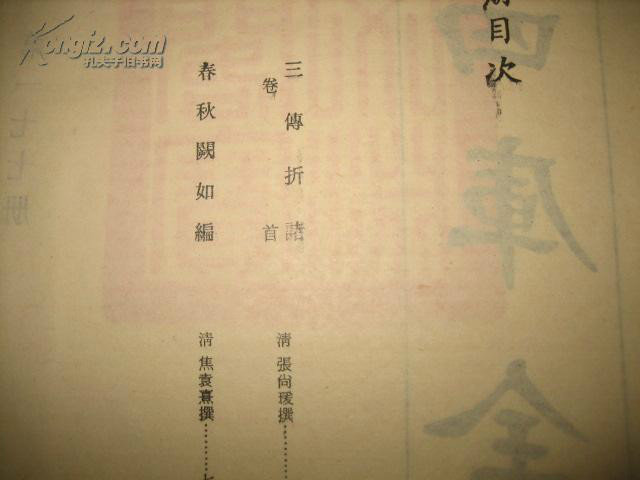 册目次
三傳折諸
卷首
清 張尚瑗撰
春秋闕如編
清 焦袁熹撰
四庫全
七七册
Kongfz.com
孔夫子旧书网